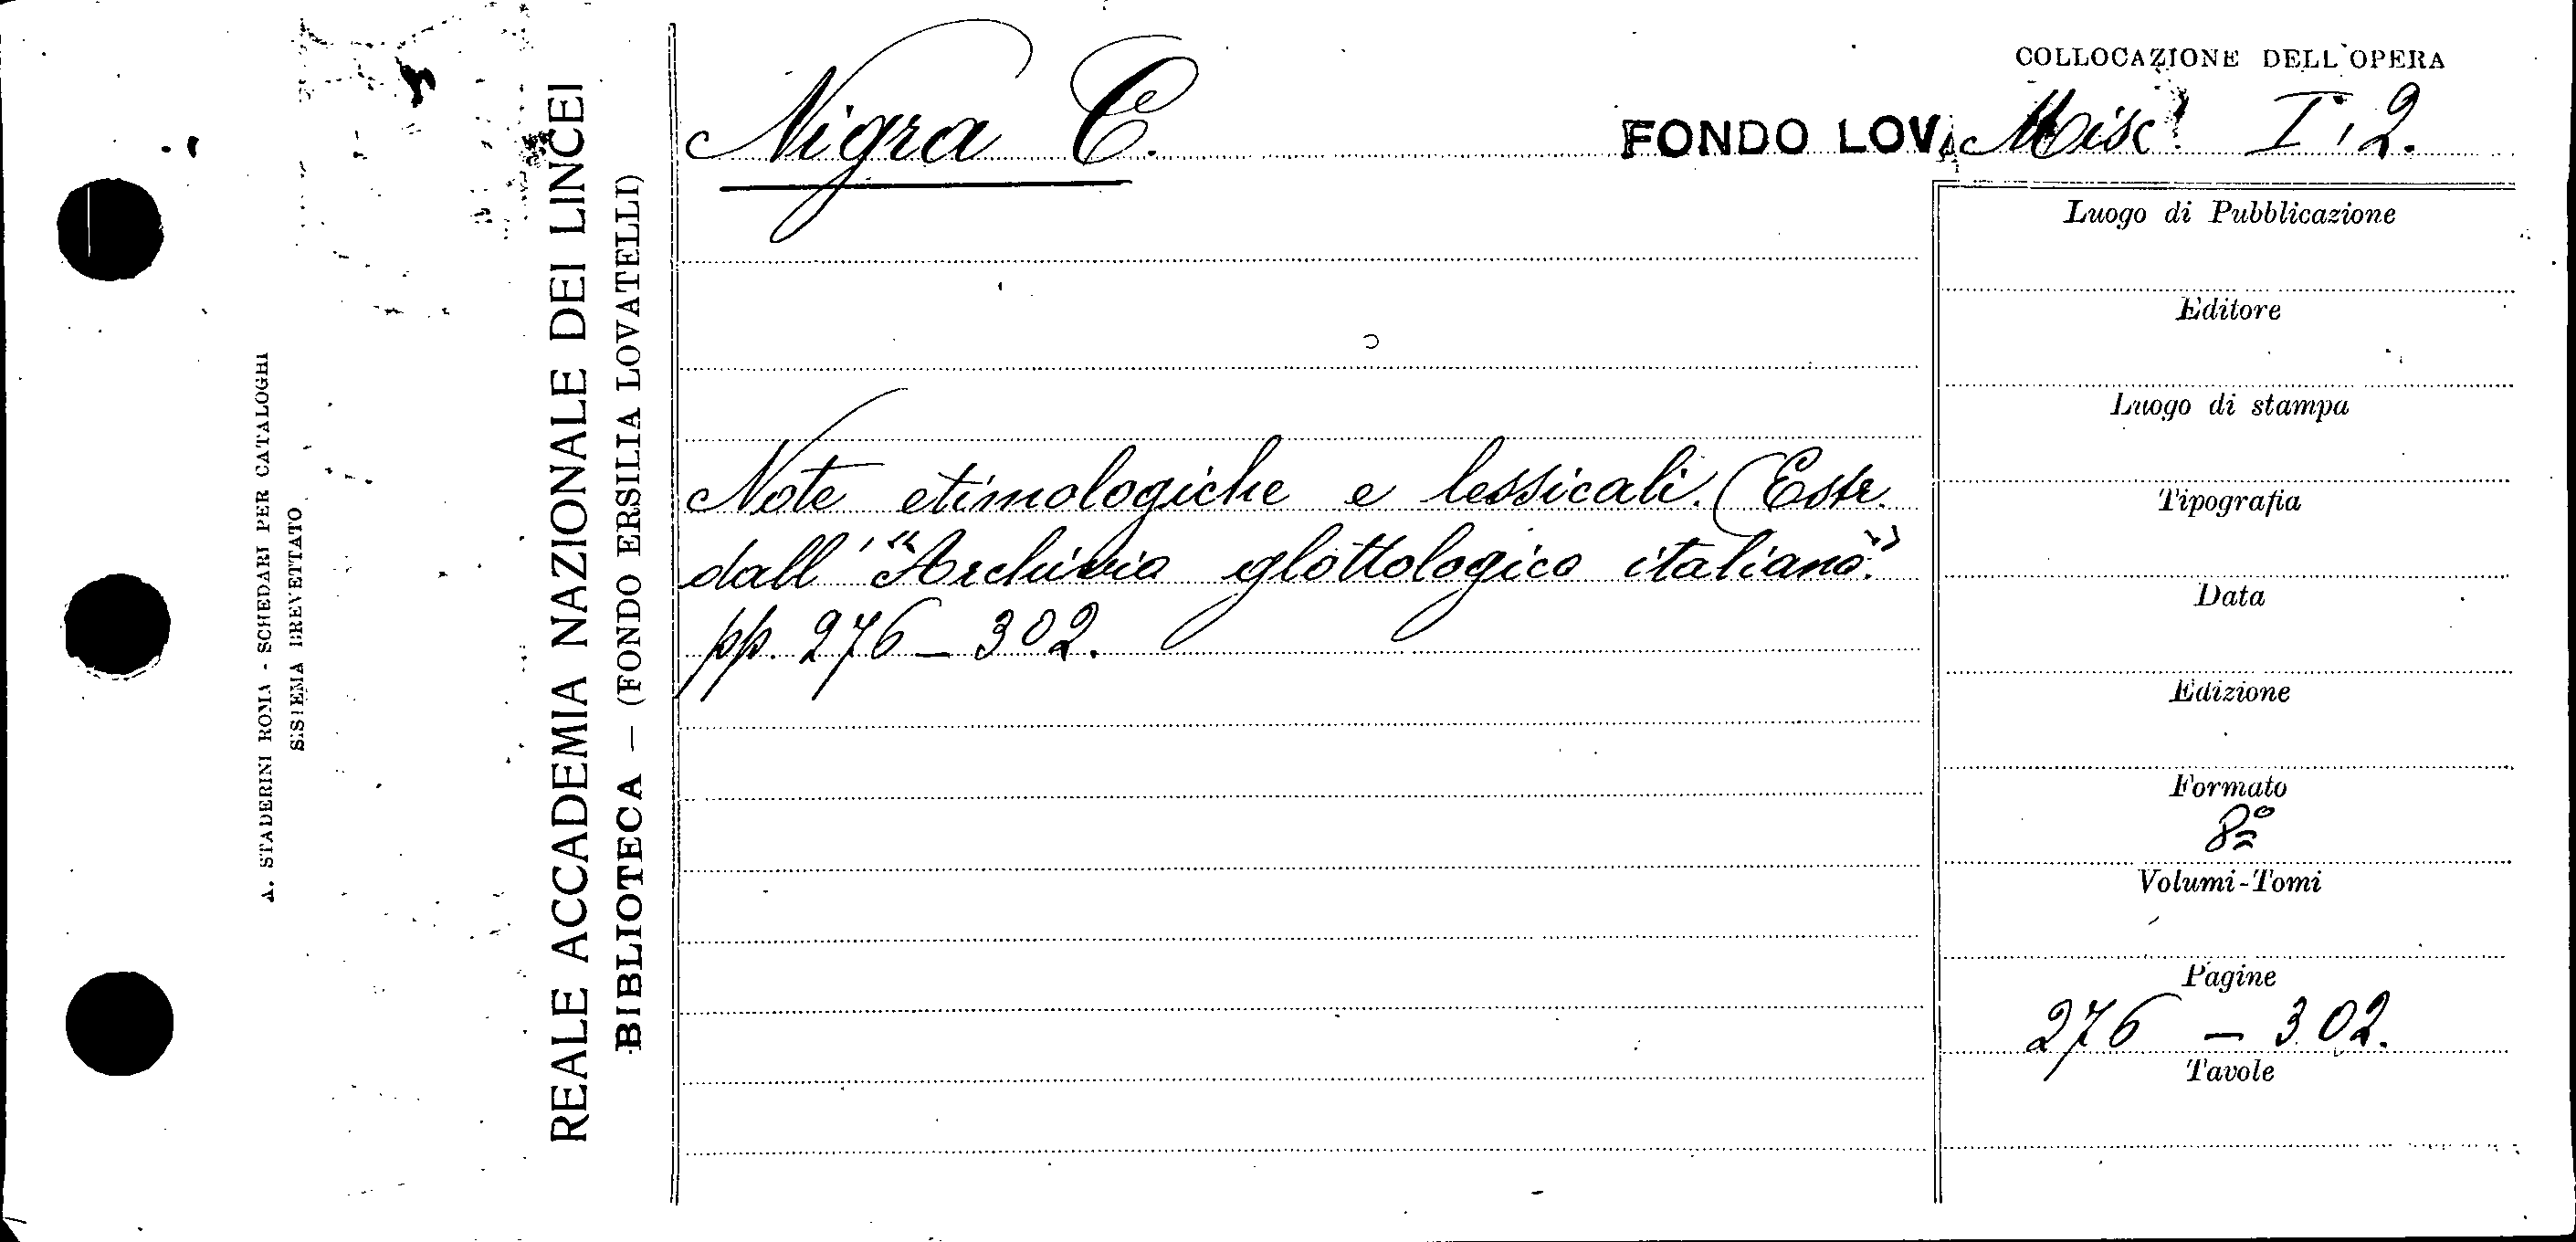 A. STADERINI ROMA - SCHEDARI PER CATALOGHI
SISTEMA BREVETTATO
REALE ACCADEMIA NAZIONALE DEI LINCEI
BIBLIOTECA — (FONDO ERSILIA LOVATELLI)
COLLOCAZIONE DELL'OPERA
Nigra C.
FONDO LOV. Misc. I, 2.
Note etimologiche e lessicali. (Estr.
dall' "Archivio glottologico italiano".
pp. 276-302.
Luogo di Pubblicazione
Editore
Luogo di stampa
Tipografia
Data
Edizione
Formato
8º
Volumi-Tomi
Pagine
276 - 302.
Tavole